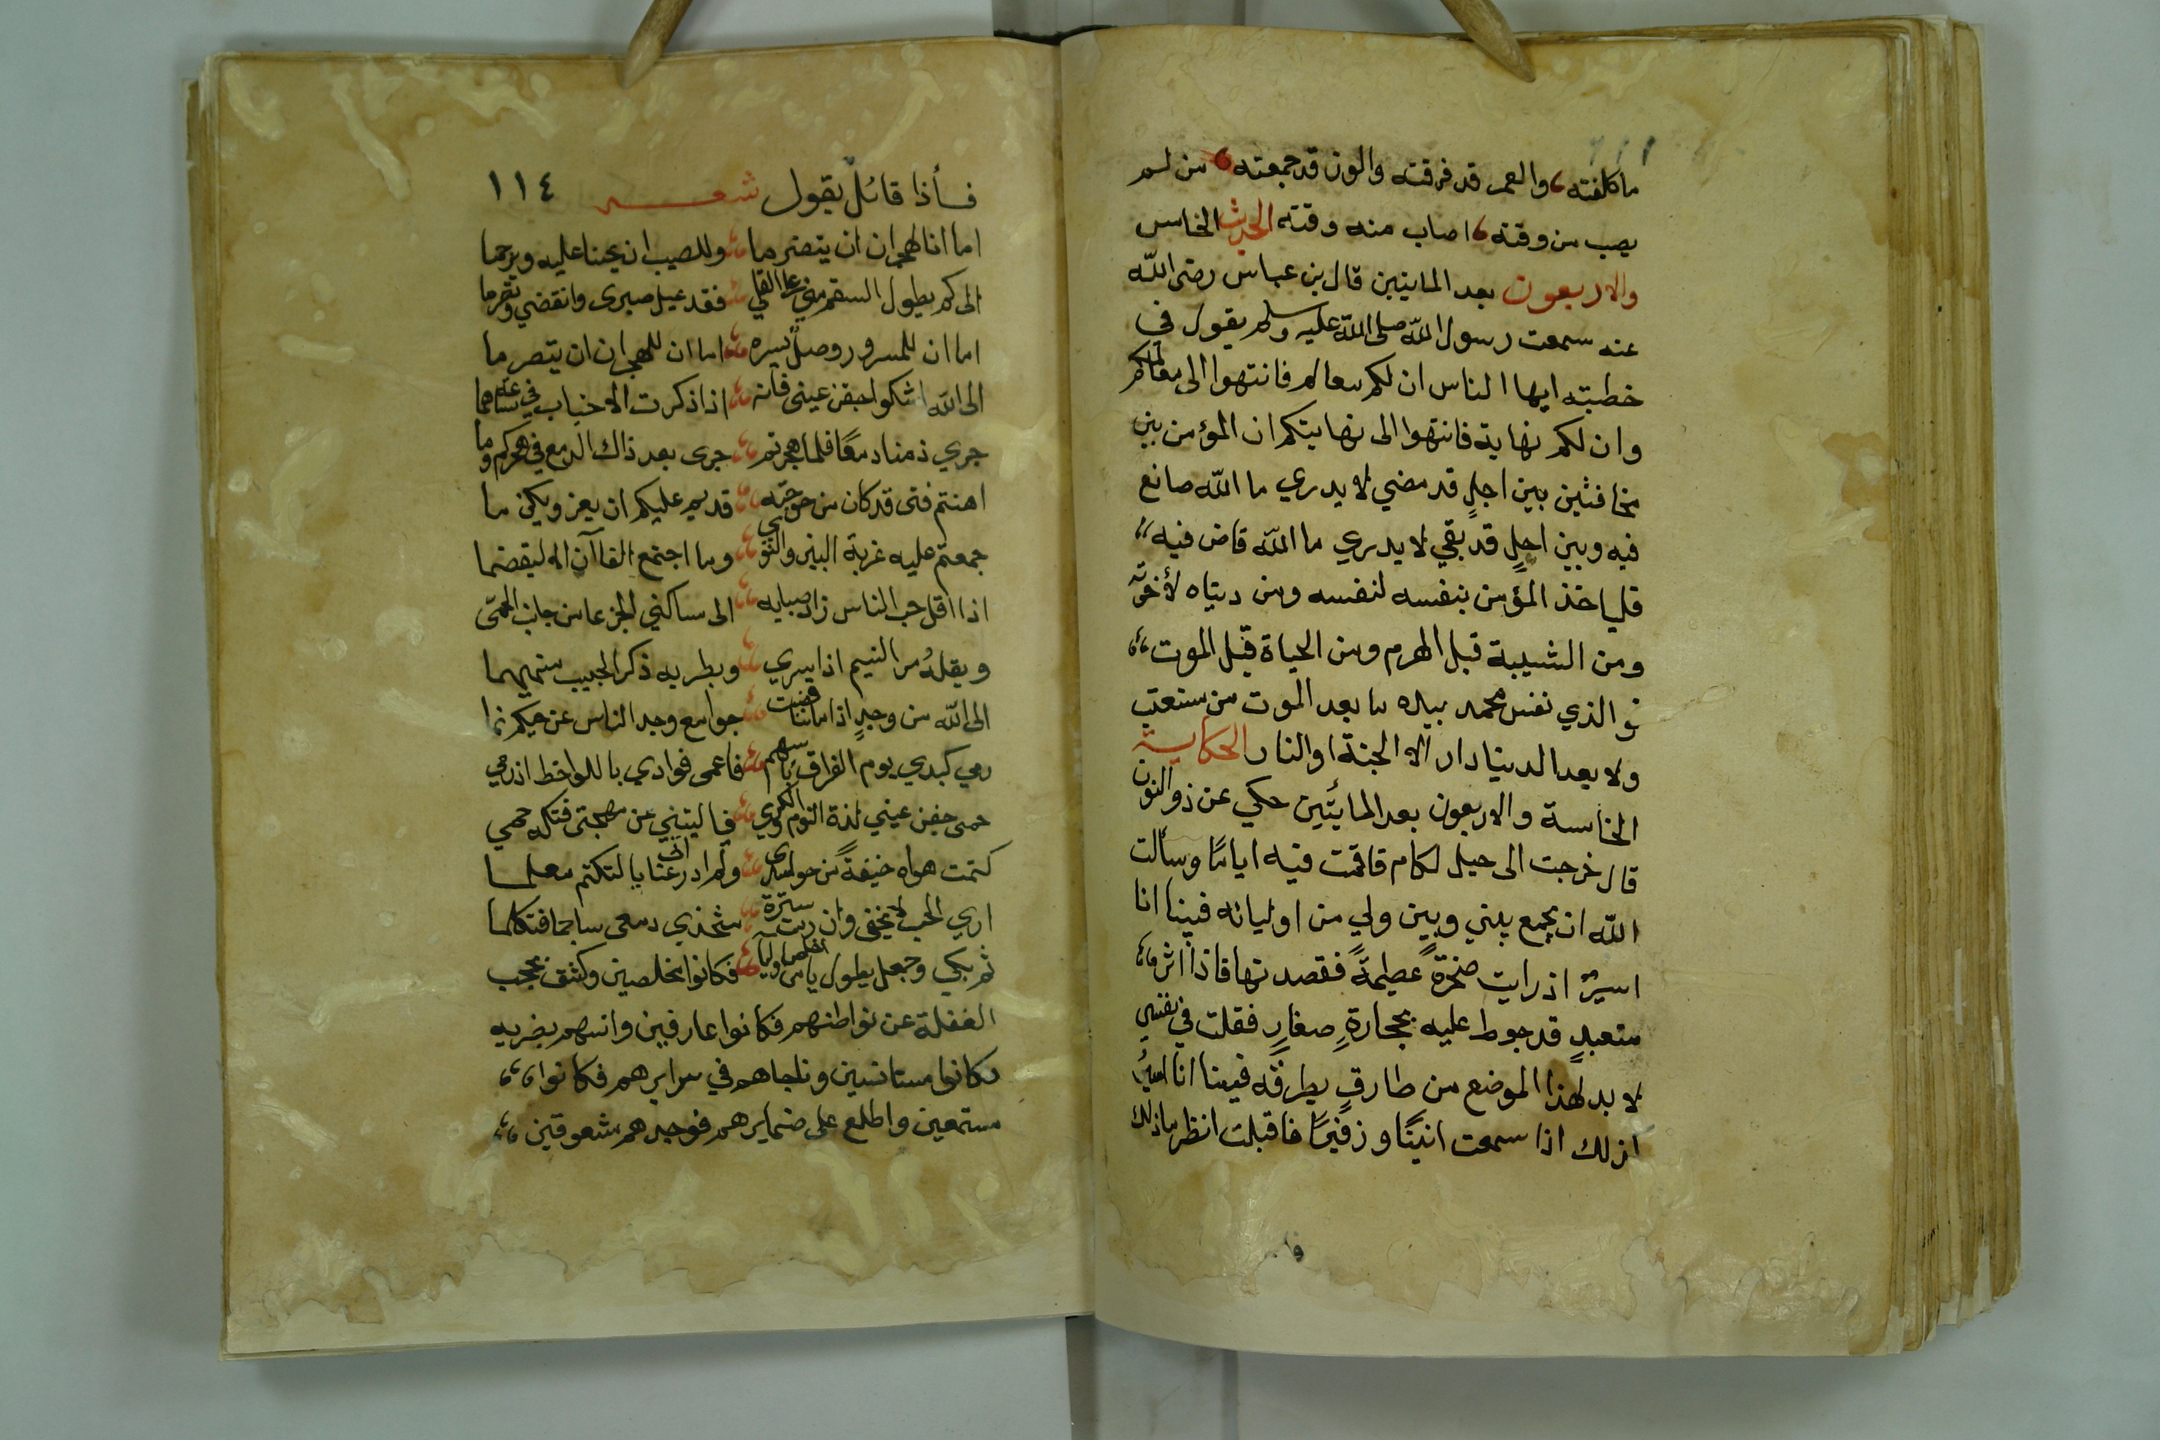 ما كلفته والعمر قد فرقته والوزر قد جمعته من لم
يصب من وقته اصاب منه وقته الحديث الخامس
والاربعون بعد الماتين قال بن عباس رضي الله
عنه سمعت رسول الله صلى الله عليه وسلم يقول في
خطبته ايها الناس ان لكم معالم فانتهوا الى معالمكم
وان لكم نهاية فانتهوا الى نهايتكم ان المؤمن بين
مخافتين بين اجل قد مضي لا يدري ما الله صانع
فيه وبين اجل قد بقي لا يدري ما الله قاض فيه
فلياخذ المؤمن بنفسه لنفسه ومن دنياه لأخرته
ومن الشبيبة قبل الهرم ومن الحياة قبل الموت
فو الذي نفس محمد بيده ما بعد الموت من مستعتب
ولا بعد الدنيا دار الا الجنة او النار الحكاية
الخامسة والاربعون بعد المايتين حكي عن ذو النون
قال خرجت الى جبل لكام فاقمت فيه اياما وسألت
الله ان يجمع بيني وبين ولي من اوليائه فبينا انا
اسير اذ رايت صخرة عظيمة فقصدتها فاذا اثر
متعبد قد حوط عليه بحجارة صغار فقلت في نفسي
لا بد لهذا الموضع من طارق يطرقه فبينا انا اسير
كذلك اذا سمعت انينا وزفيرا فاقبلت انظر ما ذلك
فا
فأذا قائل يقول شعر ١١٤
اما انا لهجران ان يتصرما وللصب ان يحنا عليه ويرحما
الى كم يطول السقم مني على القلى فقد عيل صبري وانقضي وتصرما
اما ان للمسرور وصل يسره اما ان للهجران ان يتصرما
الى الله اشكو جفن عيني فانه اذا ذكرت الاحباب في هما
جري زمنا دمعا فلما هجرتم جرى بعد ذاك الدمع في هجركم دما
اهنتم فتى قد كان من حق عليكم ان يعز ويكرما
جمعتم عليه غربة البين والنوى وما اجتمع الا ليقصما
اذا اقل حب الناس زاد صبابه الى ساكني الجزعا من جانب الحمى
ويقلقه مر النسيم اذا يسري ويطربه ذكر الحبيب
الى الله من وجد اذا ما جوامع وجد الناس عن حيكم نما
رمي كبدي يوم الفراق باسهم فاعمى فوادي باللواحظ اذ رمي
حمى جفن عيني لذة النوم والكري فيا ليتني عن مهجتي فتكه حمي
كتمت هواه خيفة من حواسدي ولم ادر اني بالتكتم معلما
اري الحب لا يخفى وان رمت سترة دمعى ساجما فتكلما
ثم بكي وجعل يطول يا من اخلص اولياءه فكانوا مخلصين وكشف حجب
الغفلة عن بواطنهم فكانوا عارفين وانسهم بقربه
فكانوا مستانسين وناجاهم في سرايرهم فكانوا
مستمعين واطلع على ضمايرهم فوجدهم مشعوقين